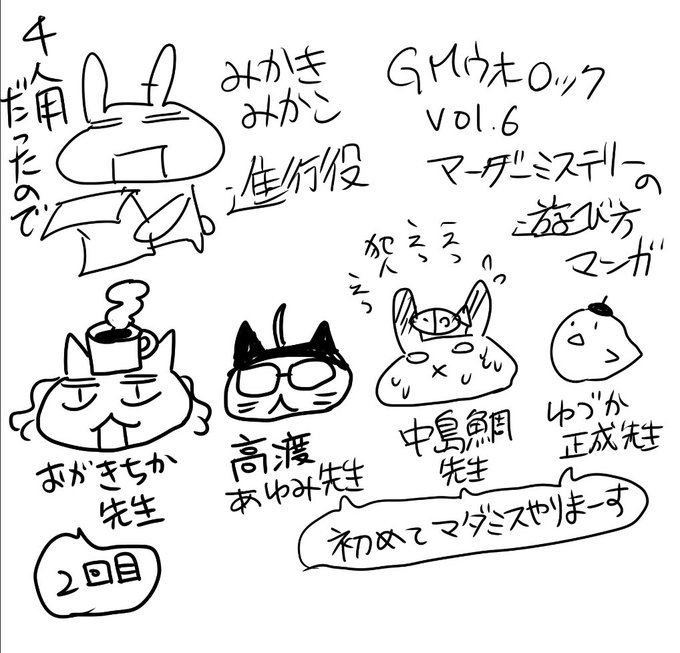 4人用
だったので
みかき
みかこ
進行役
GMウォーロック
vol.6
マーダーミステリーの
遊び方
マンガ
えっ
犯人
えっ
えっ
おがきちか
先生
高渡
あゆみ先生
中島鯛
先生
ゆづか
正成先生
初めてマダミスやりまーす
2回目